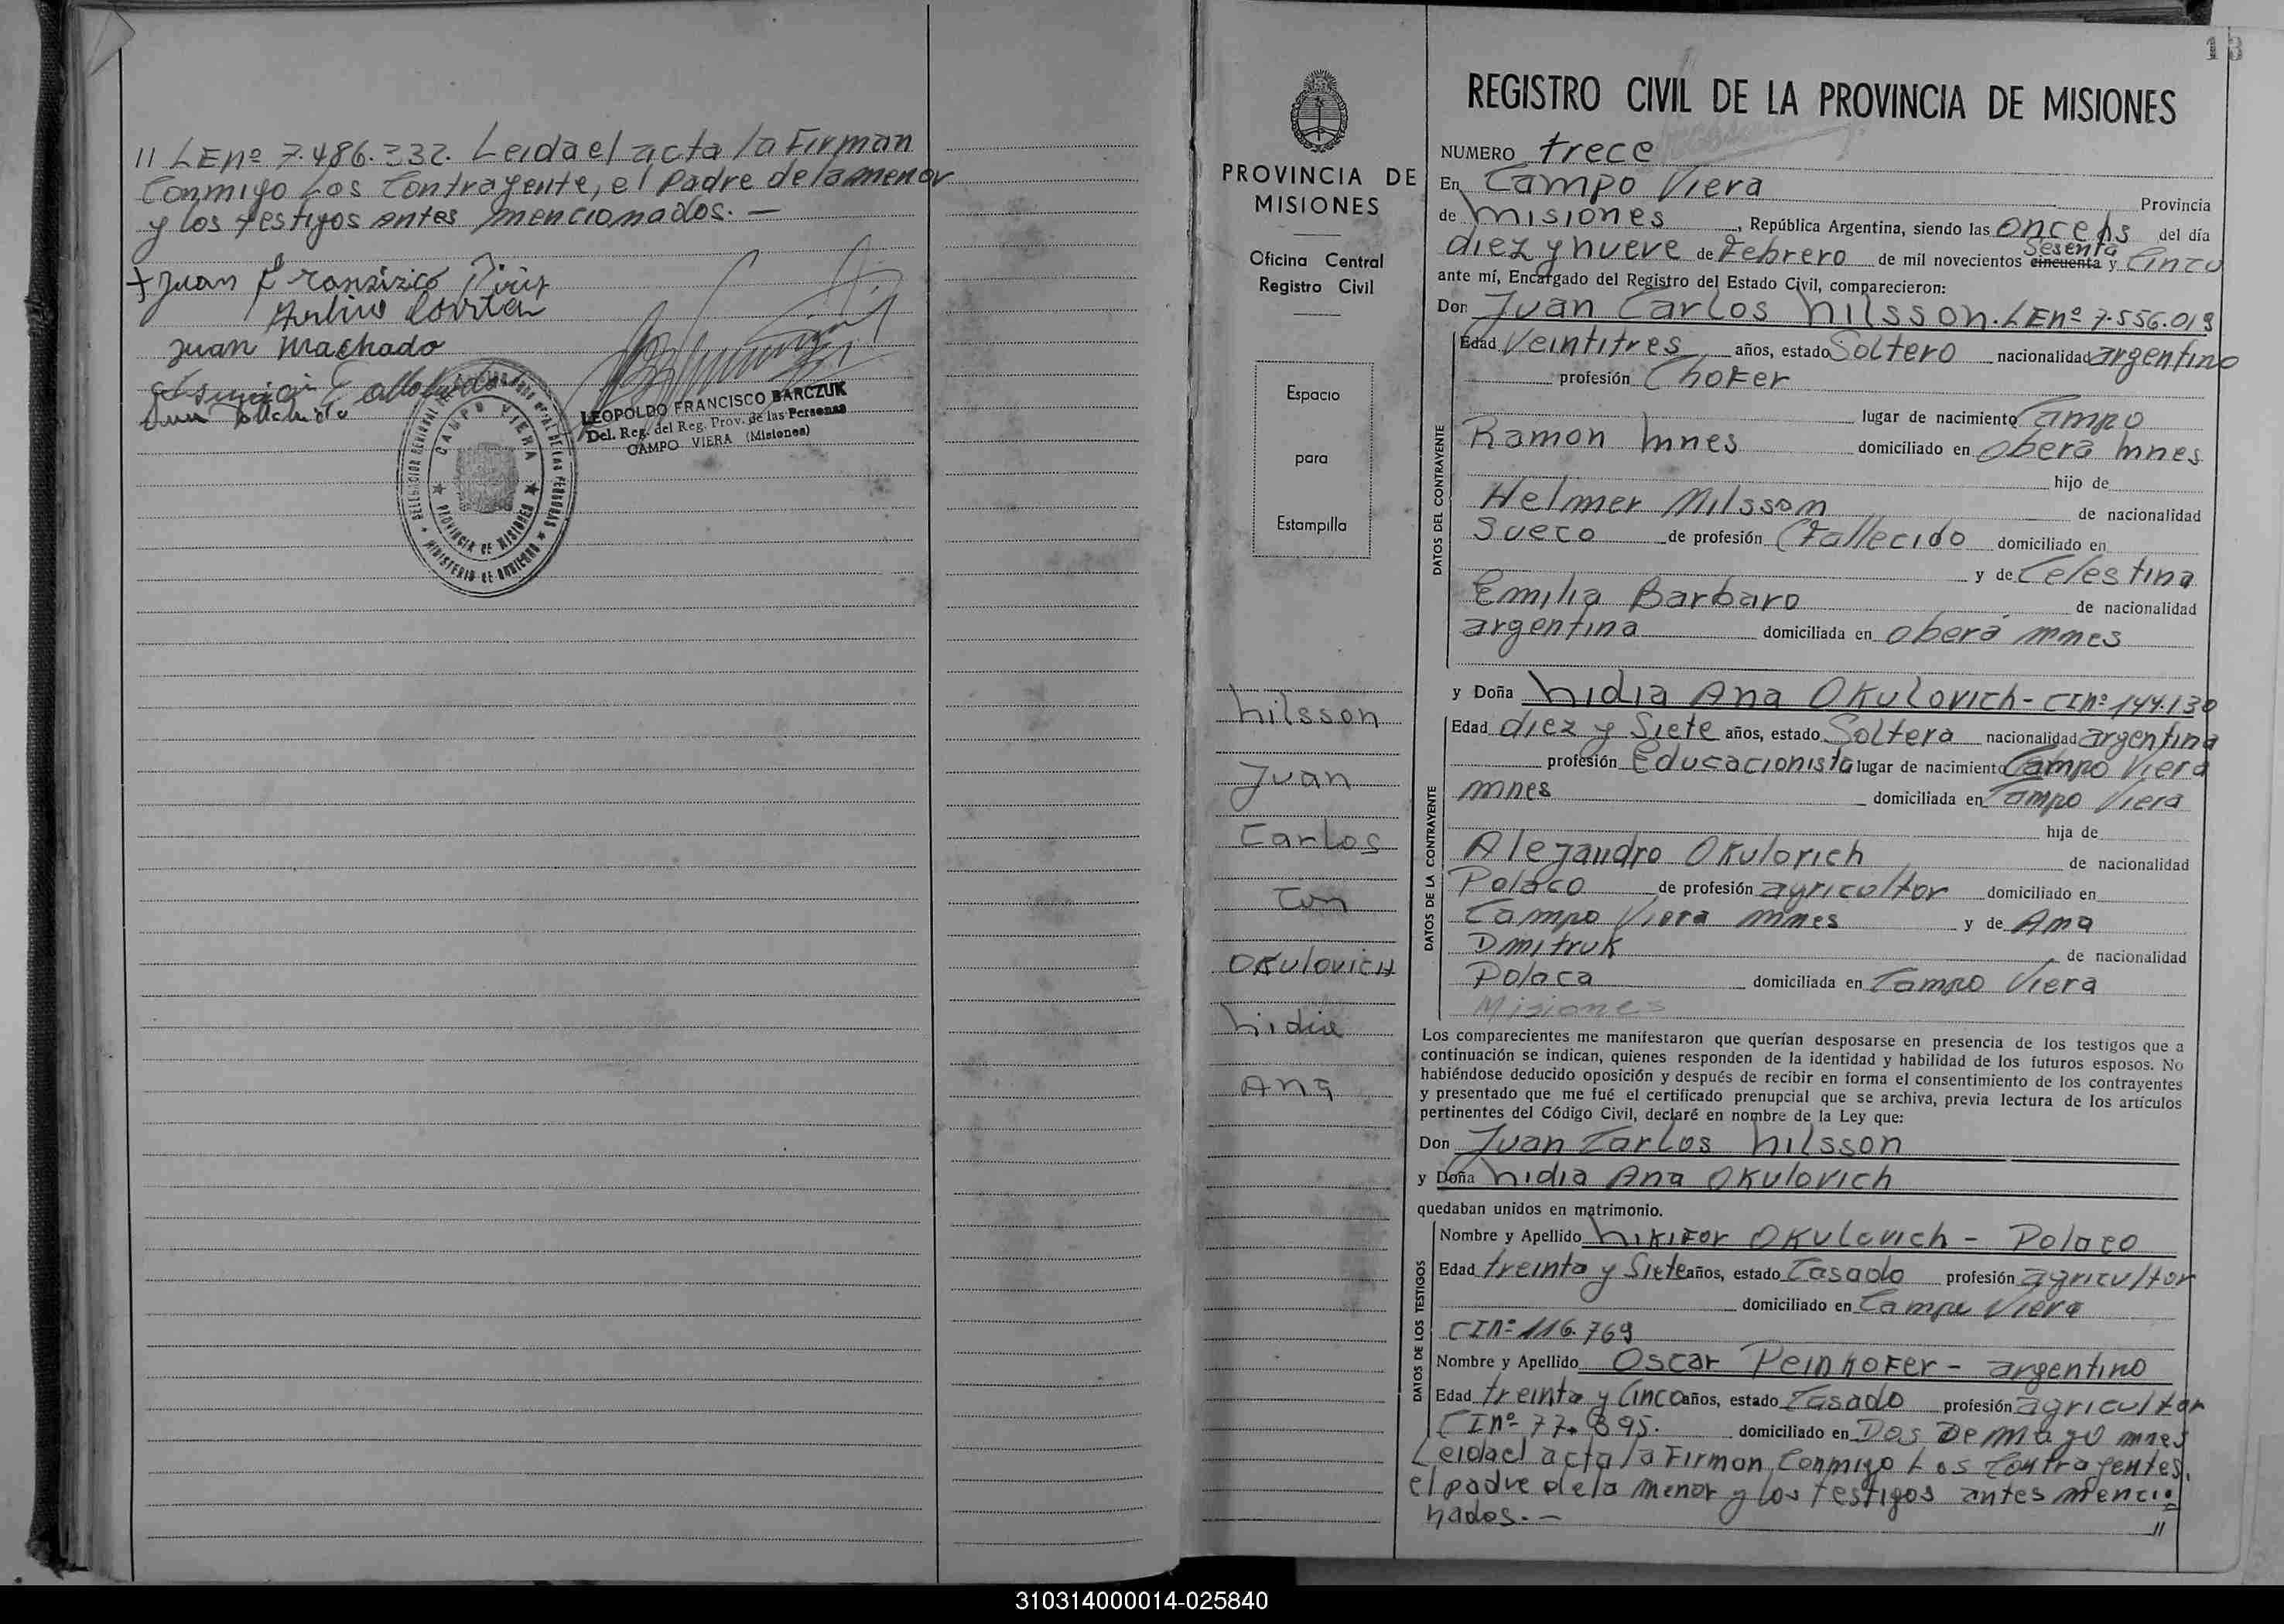 II LEnº 7.486.332. Leida el acta la Firman
Conmigo Los Contrayente, el Padre de la menor
y los testigos antes mencionados. —
Juan
Juan Machado
LEOPOLDO FRANCISCO BARCZUK
Del. Reg. del Reg. Prov. de las Personas
CAMPO VIERA (Misiones)
CAMPO VIERA
PROVINCIA DE MISIONES
MINISTERIO DE GOBIERNO
13
PROVINCIA DE
MISIONES
Oficina Central
Registro Civil
Espacio
para
Estampilla
Nilsson
Juan
Carlos
Con
OKulovicH
Nidia
Ana
REGISTRO CIVIL DE LA PROVINCIA DE MISIONES
NUMERO trece
En Campo Viera Provincia
de Misiones, República Argentina, siendo las once hs del día
diez y nueve de Febrero de mil novecientos cincuenta Sesenta y Cinco
ante mí, Encargado del Registro del Estado Civil, comparecieron:
Don Juan Carlos Nilsson. LEnº 7.556.019
Edad Veintitres años, estado Soltero nacionalidad argentino
profesión Chofer
lugar de nacimiento Campo
Ramon Mnes domiciliado en Oberá Mnes
hijo de
Helmer Nilsson de nacionalidad
Sueco de profesión (Fallecido domiciliado en
y de Celestina
Emilia Barbaro de nacionalidad
argentina domiciliada en Oberá Mnes
y Doña Nidia Ana OKulovich - CInº 144.130
Edad diez y Siete años, estado Soltera nacionalidad argentina
profesión Educacionista lugar de nacimiento Campo Viera
Mnes domiciliada en Campo Viera
hija de
Alejandro OKulovich de nacionalidad
Polaco de profesión agricultor domiciliado en
Campo Viera Mnes y de Ana
Dmitruk de nacionalidad
Polaca domiciliada en Campo Viera
Misiones
DATOS DEL CONTRAYENTE
DATOS DE LA CONTRAYENTE
Los comparecientes me manifestaron que querían desposarse en presencia de los testigos que a
continuación se indican, quienes responden de la identidad y habilidad de los futuros esposos. No
habiéndose deducido oposición y después de recibir en forma el consentimiento de los contrayentes
y presentado que me fué el certificado prenupcial que se archiva, previa lectura de los artículos
pertinentes del Código Civil, declaré en nombre de la Ley que:
Don Juan Carlos Nilsson
y Doña Nidia Ana OKulovich
quedaban unidos en matrimonio.
DATOS DE LOS TESTIGOS
Nombre y Apellido NiKiFor OKulovich - Polaco
Edad treinta y Siete años, estado Casado profesión agricultor
domiciliado en Campo Viera
CInº 116.769
Nombre y Apellido Oscar PeinhoFer - argentino
Edad treinta y Cinco años, estado Casado profesión agricultor
CInº 77.895. domiciliado en Dos De Mayo Mnes
Leida el acta la Firman Conmigo Los Contrayentes,
el padre de la menor y los testigos antes mencio=
nados. —
II
310314000014-025840